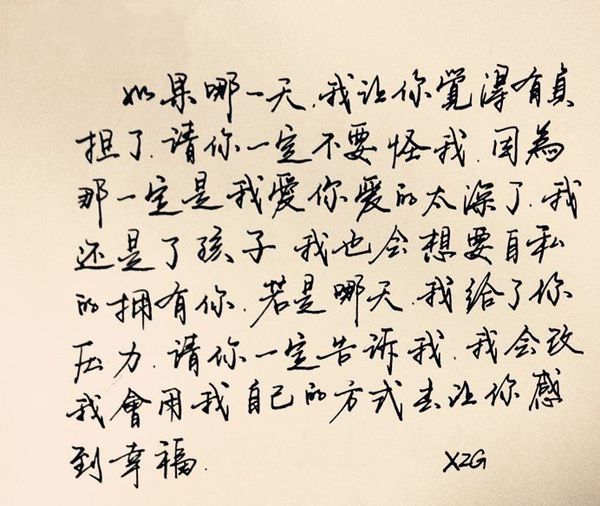 如果哪一天.我让你覺得有負
担了.请你一定不要怪我.因為
那一定是我愛你愛的太深了.我
还是了孩子 我也会想要自私
的拥有你.若是哪天.我给了你
压力.请你一定告诉我.我会改
我會用我自己的方式去让你感
到幸福.
XZG